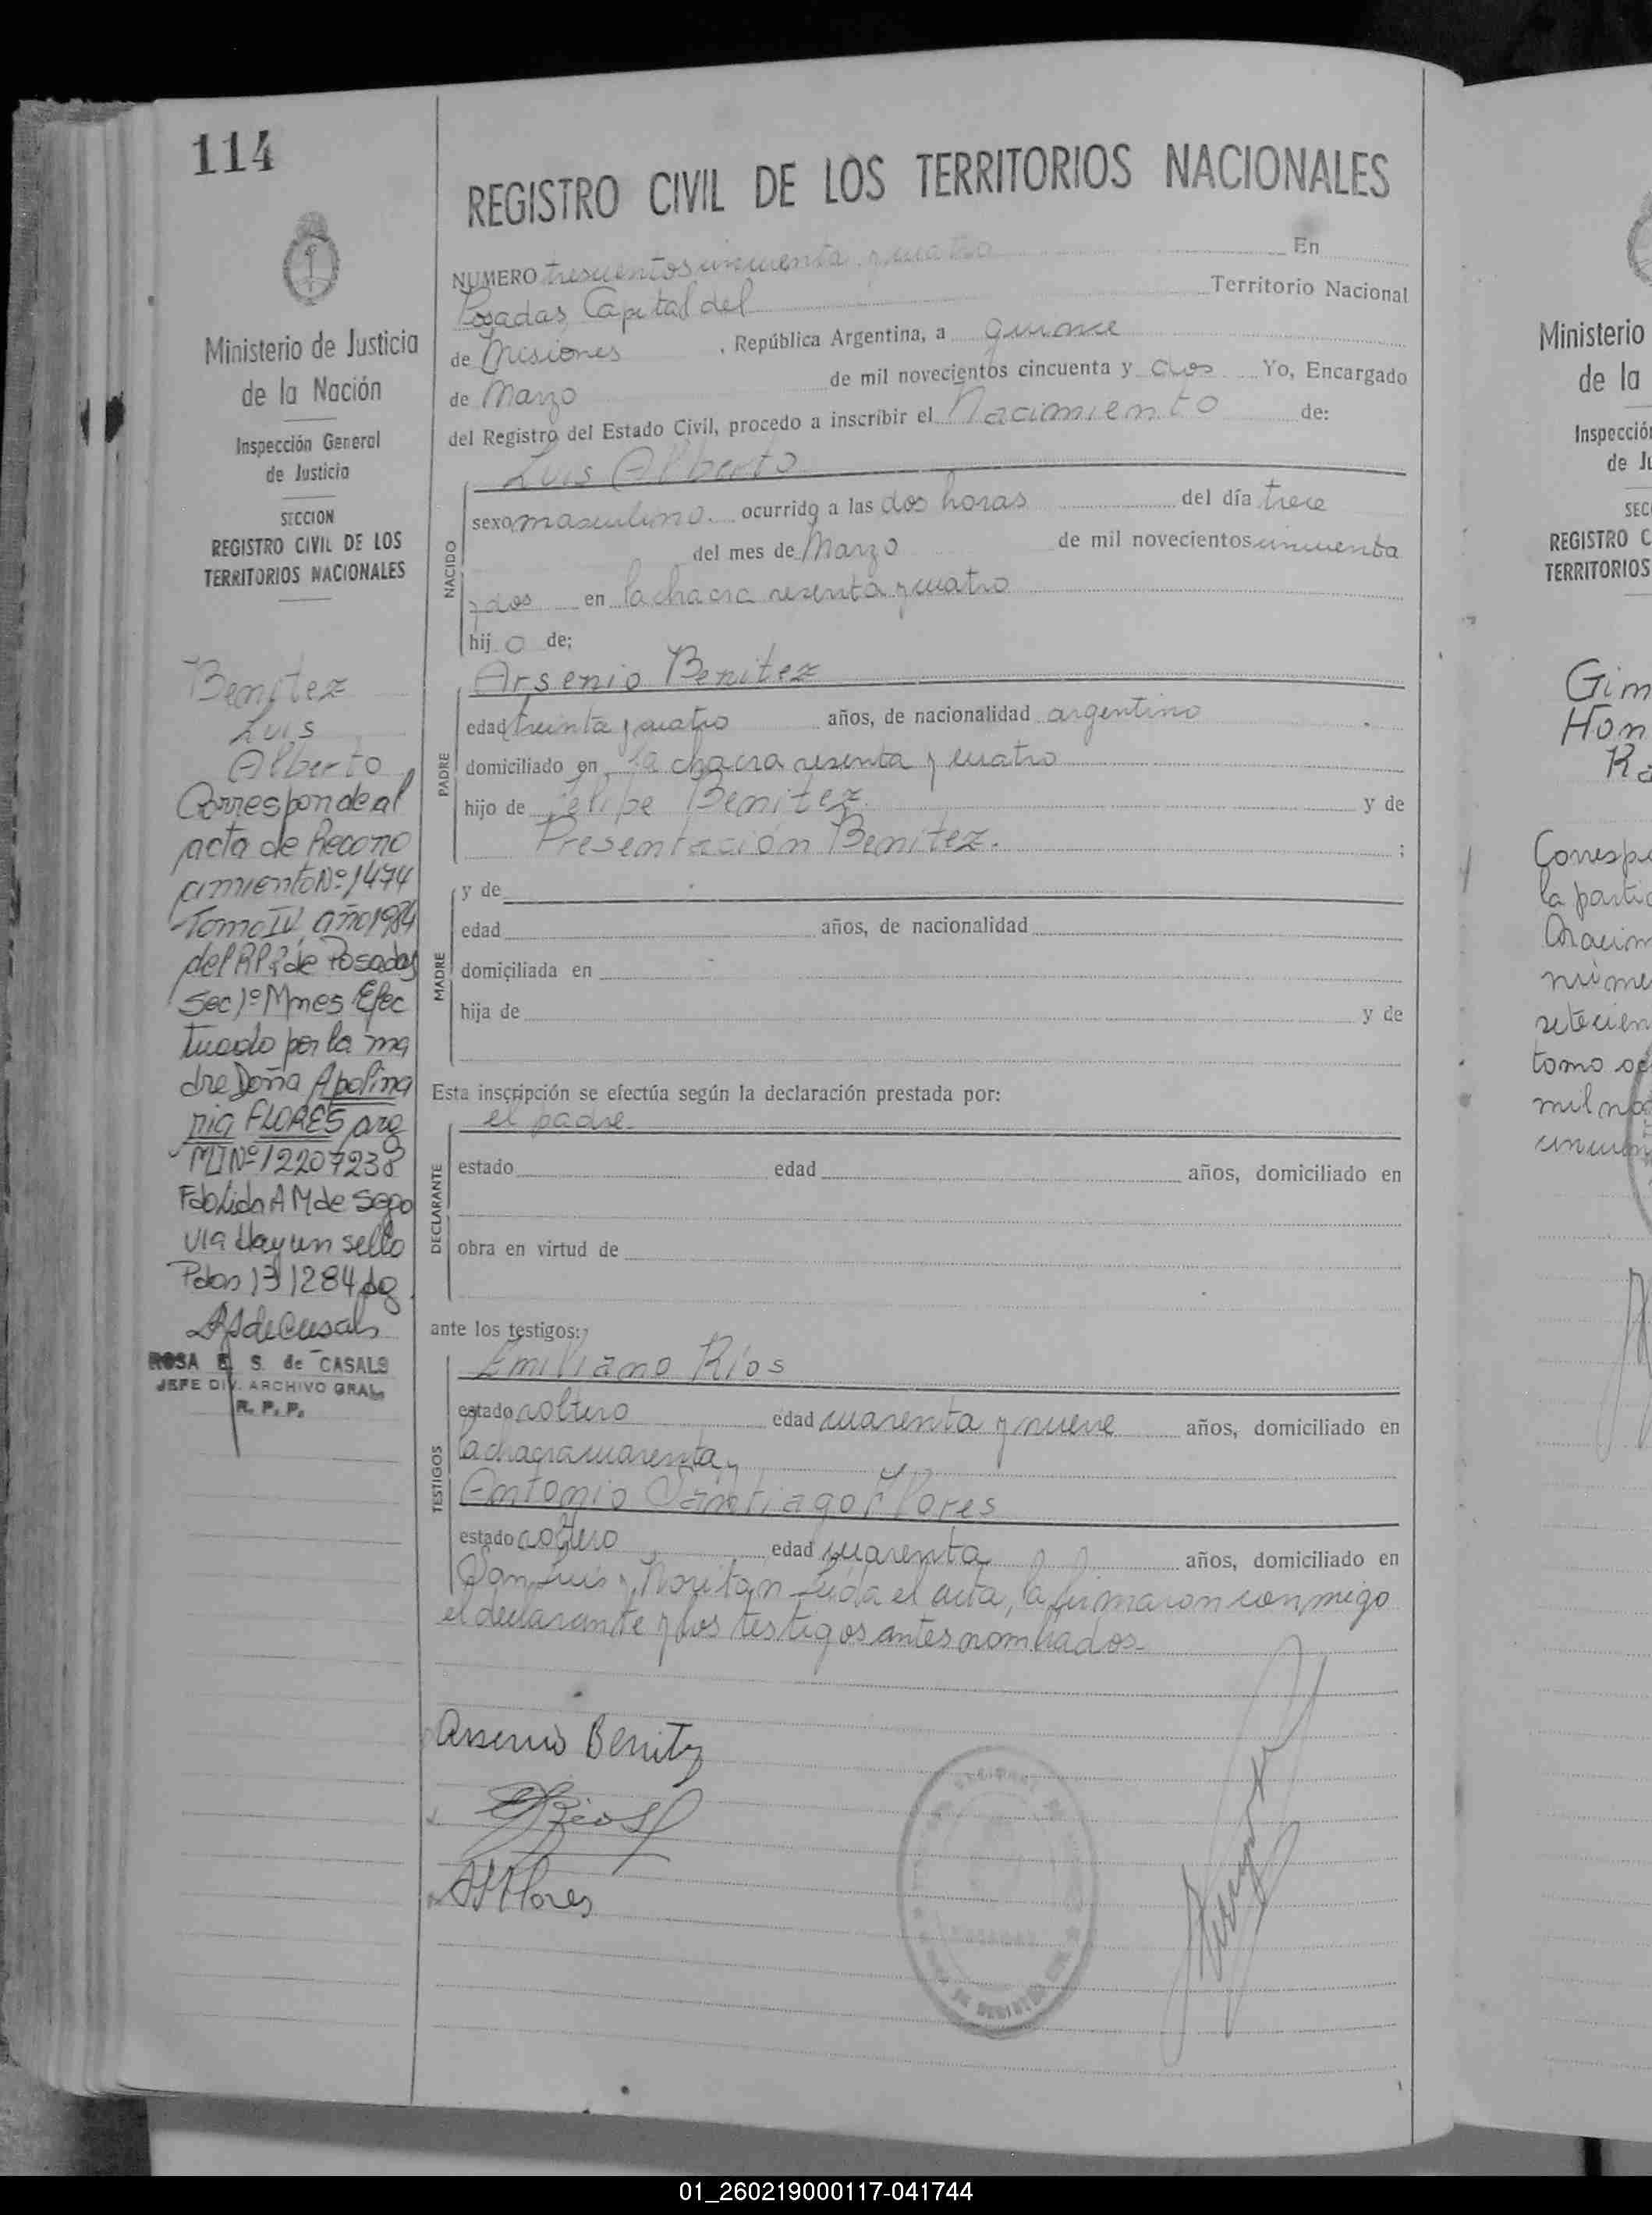 114
REGISTRO CIVIL DE LOS TERRITORIOS NACIONALES
Ministerio de Justicia
de la Nación
Inspección General
de Justicia
SECCION
REGISTRO CIVIL DE LOS
TERRITORIOS NACIONALES
Benitez
Luis
Alberto
Corresponde al
acta de Recono
cimiento Nº 1474
Tomo IV año 1984
del RPP de Posadas
Sec 1º Mnes Efec
tuado por la ma
dre Doña Apolina
ria FLORES arg
MI Nº 12207238
Fdo Lida A M de Sego
via Hay un sello
Pdas 131284
ROSA E. S. de CASALS
JEFE DIV. ARCHIVO GRAL.
R. P. P.
NUMERO trescientos cincuenta y cuatro En
Posadas, Capital del Territorio Nacional
de Misiones , República Argentina, a quince
de Marzo de mil novecientos cincuenta y dos Yo, Encargado
del Registro del Estado Civil, procedo a inscribir el Nacimiento de:
NACIDO
Luis Alberto
sexo masculino. ocurrido a las dos horas del día trece
del mes de Marzo de mil novecientos cincuenta
y dos en la chacra sesenta y cuatro
hij o de:
PADRE
Arsenio Benitez
edad treinta y cuatro años, de nacionalidad argentino
domiciliado en la chacra sesenta y cuatro
hijo de Felipe Benitez y de
Presentación Benitez. ;
MADRE
y de
edad años, de nacionalidad
domiciliada en
hija de y de
Esta inscripción se efectúa según la declaración prestada por:
DECLARANTE
el padre.
estado edad años, domiciliado en
obra en virtud de
ante los testigos:
TESTIGOS
Emiliano Ríos
estado soltero edad cuarenta y nueve años, domiciliado en
la chacra cuarenta y
Antonio Santiago Flores
estado soltero edad cuarenta años, domiciliado en
San Luis y Moritan Leída el acta, la firmaron conmigo
el declarante y los testigos antes nombrados.
Arsenio Benitez
ERios
ASFlores
Ministerio
de la
Inspección
de Ju
SEC
REGISTRO C
TERRITORIOS
Gim
Hon
Ra
Corresp
la partid
nume
setecien
tomo
mil no
cincuen
01_260219000117-041744